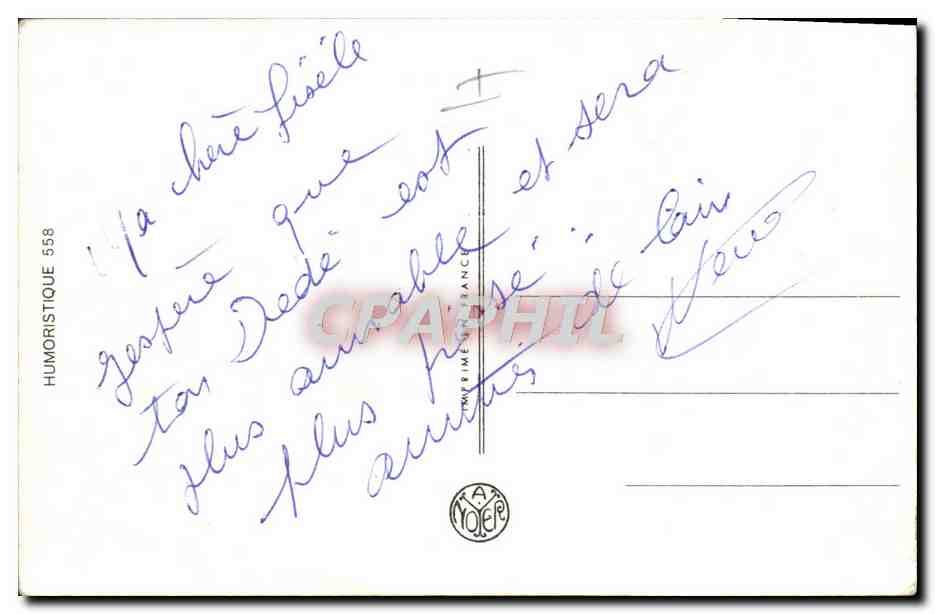 Ma chère Gisèle
Jespère que
ton Dédé est
plus aimable et sera
plus frisé
amitiés de
HUMORISTIQUE 558
IMPRIMÉ EN FRANCE
CPAPHIL
A
NOYER